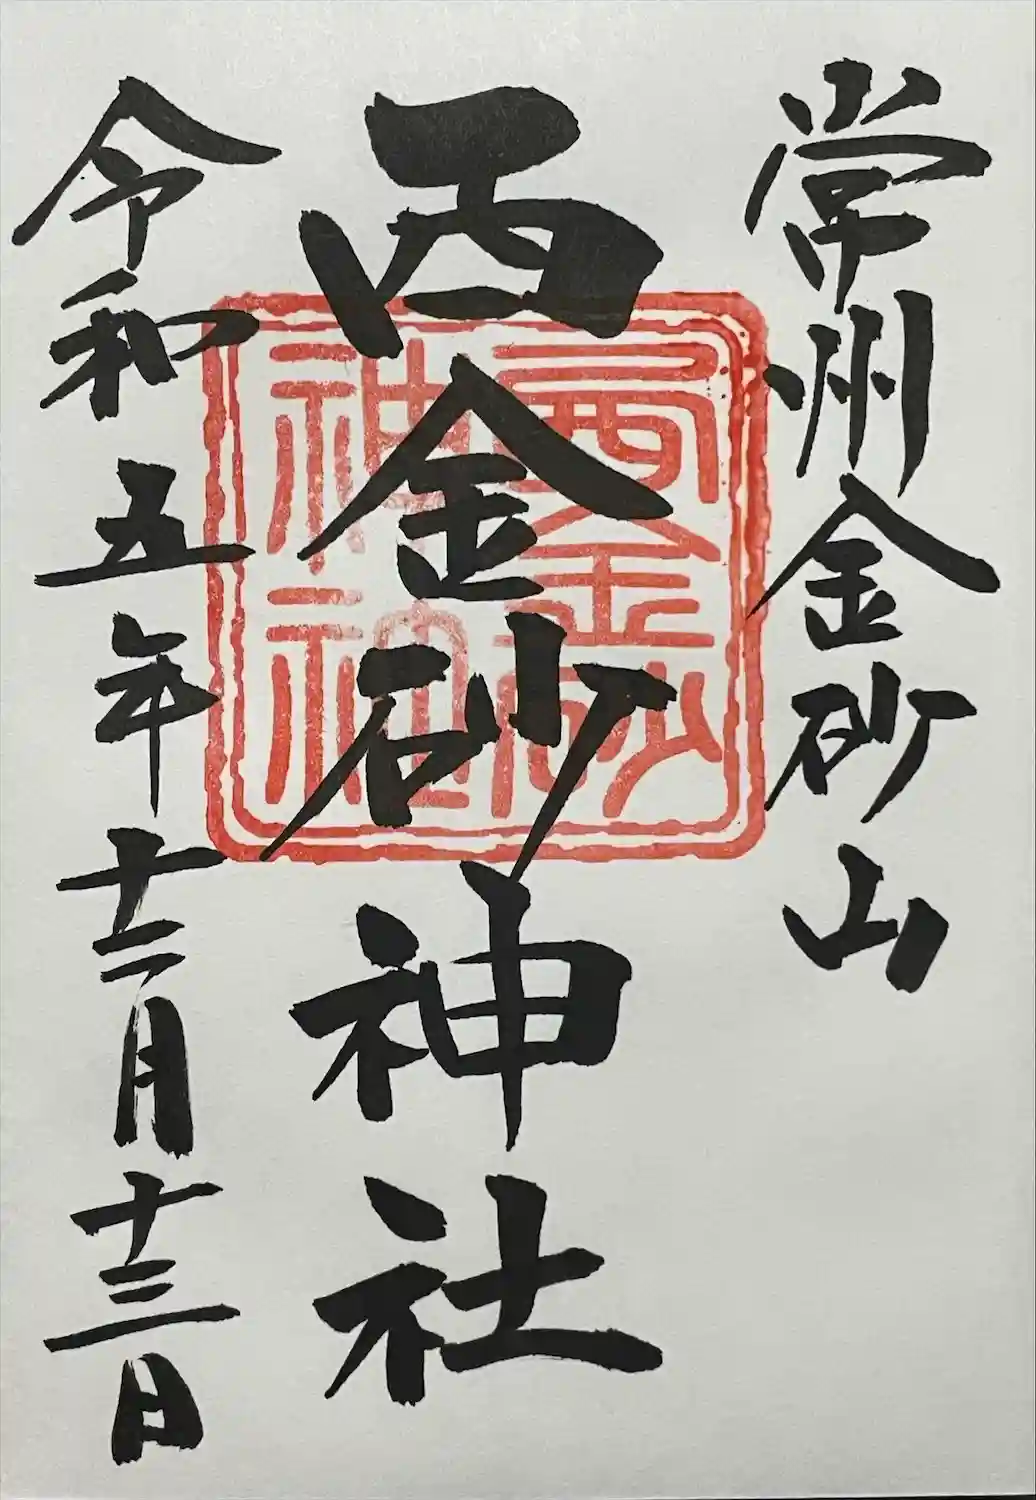 常州金砂山
西金砂神社
令和五年十二月十三日
西金砂
神社